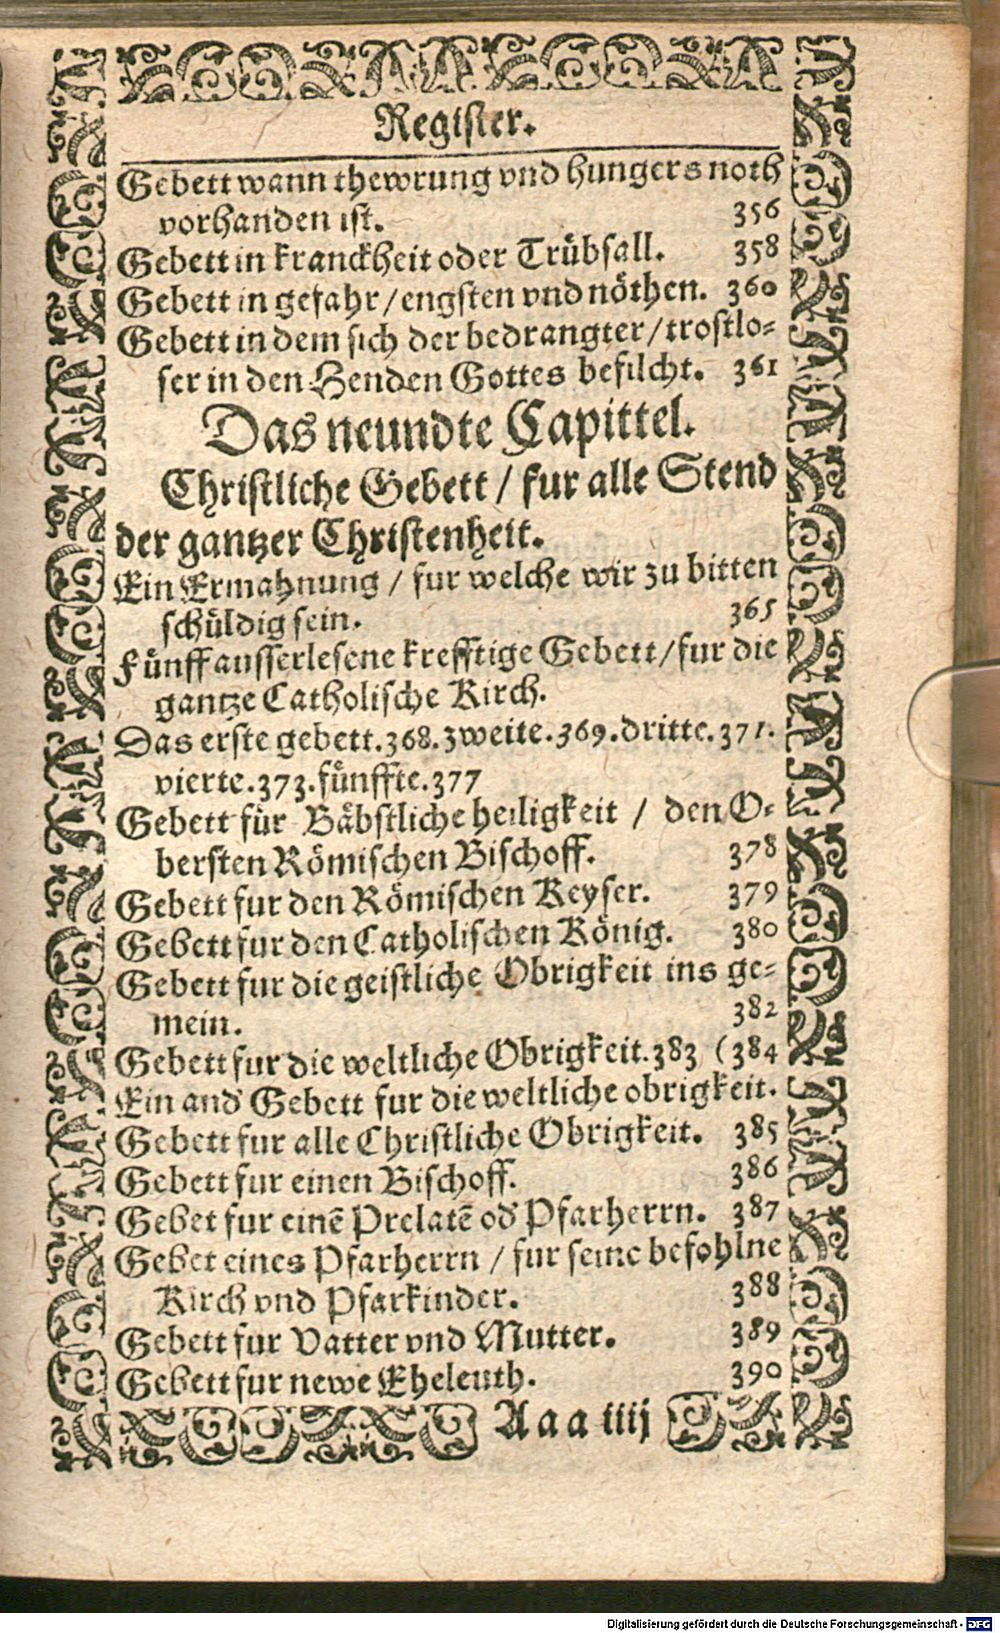 Register.
Gebett wann thewrung vnd hungers noth
vorhanden ist. 356
Gebett in kranckheit oder Trübsall. 358
Gebett in gefahr/engsten vnd nöthen. 360
Gebett in dem sich der bedrangter/trostlo-
ser in den Henden Gottes befilcht. 361
Das neundte Capittel.
Christliche Gebett / fur alle Stend
der gantzer Christenheit.
Ein Ermahnung / fur welche wir zu bitten
schüldig sein. 365
Fünff ausserlesene krefftige Gebett/fur die
gantze Catholische Kirch.
Das erste gebett.368.zweite.369.dritte.371.
vierte.373.fünffte.377
Gebett für Bäbstliche heiligkeit / den O-
bersten Römischen Bischoff. 378
Gebett fur den Römischen Keyser. 379
Gebett fur den Catholischen König. 380
Gebett fur die geistliche Obrigkeit ins ge-
mein. 382
Gebett fur die weltliche Obrigkeit.383 (384
Ein and' Gebett fur die weltliche obrigkeit.
Gebett fur alle Christliche Obrigkeit. 385
Gebett fur einen Bischoff. 386
Gebet fur einē Prelatē od' Pfarherrn. 387
Gebet eines Pfarherrn / fur seine befohlne
Kirch vnd Pfarkinder. 388
Gebett fur Vatter vnd Mutter. 389
Gebett fur newe Eheleuth. 390
Aaa iiij
Digitalisierung gefördert durch die Deutsche Forschungsgemeinschaft - DFG